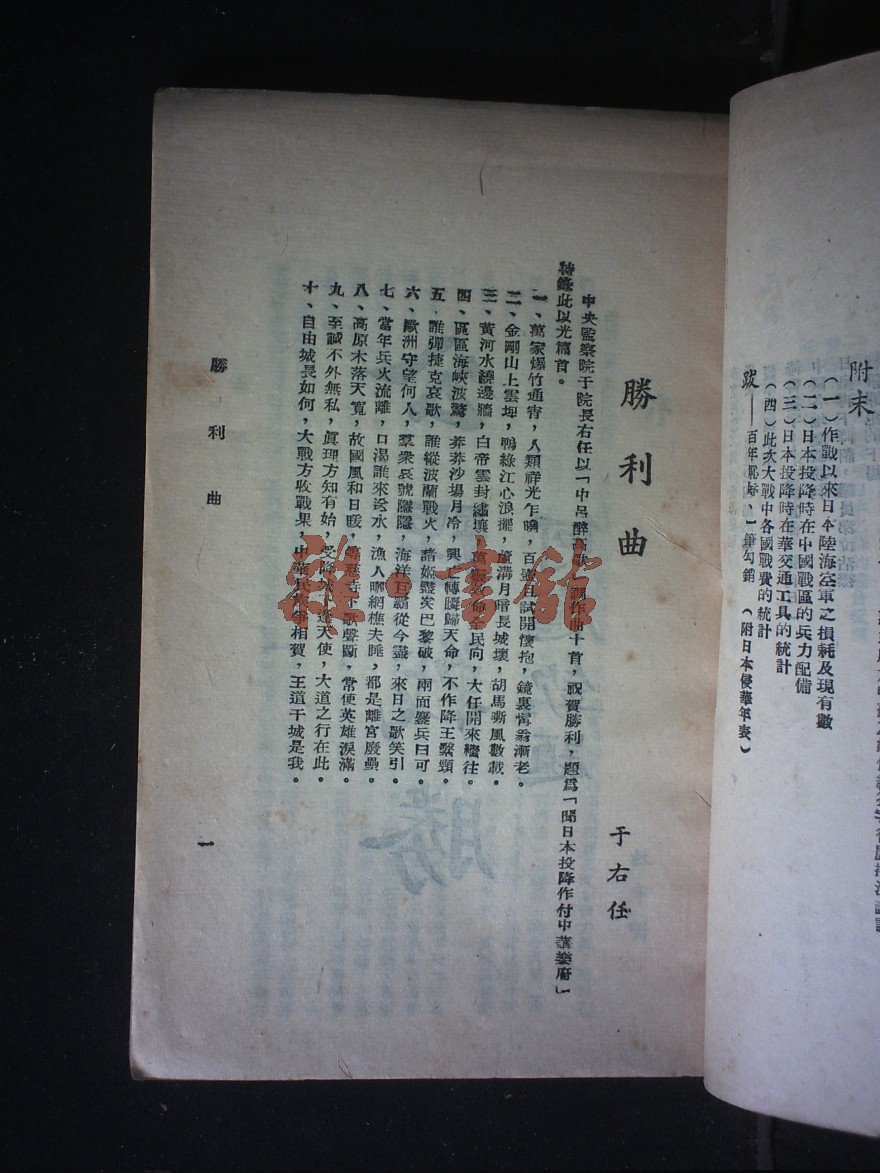 附末
(一)作戰以來日本陸海空軍之損耗及現有數
(二)日本投降時在中國戰區的兵力配備
(三)日本投降時在華交通工具的統計
(四)此次大戰中各國戰費的統計
跋——百年恥辱、一筆勾銷(附日本侵華年表)
勝利曲
于右任
中央監察院于院長右任以「中呂醉高歌」調作曲十首,祝賀勝利,題爲「聞日本投降作付中華樂府」
特錄此以光篇首。
一、萬家爆竹通宵,人類祥光乍曉,百壺且試開懷抱,鏡裏髯翁漸老。
二、金剛山上雲埋,鴨綠江心浪擺,蘆溝月暗長城壞,胡馬嘶風數載。
三、黃河水繞邊牆,白帝雲封繡壤,萬靈效命全民向,大任開來繼往。
四、區區海峽波驚,莽莽沙場月冷,興亡轉瞬歸天命,不作降王繫頸。
五、誰彈捷克哀歌,誰縱波蘭戰火,諸姬盡矣巴黎破,兩面鏖兵曰可。
六、歐洲守望何人,羣衆哀號隱隱,海洋互霸從今盡,來日之歌笑引。
七、當年兵火流離,口渴誰來送水,漁人晒網樵夫睡,都是離宮廢壘。
八、高原木落天寬,故國風和日暖,等慈寺下歌聲斷,常使英雄淚滿。
九、至誠不外無私,眞理方知有始,受降城下逢天使,大道之行在此。
十、自由城長如何,大戰方收戰果,中華民族爭相賀,王道干城是我。
勝利曲
一
雜·書館